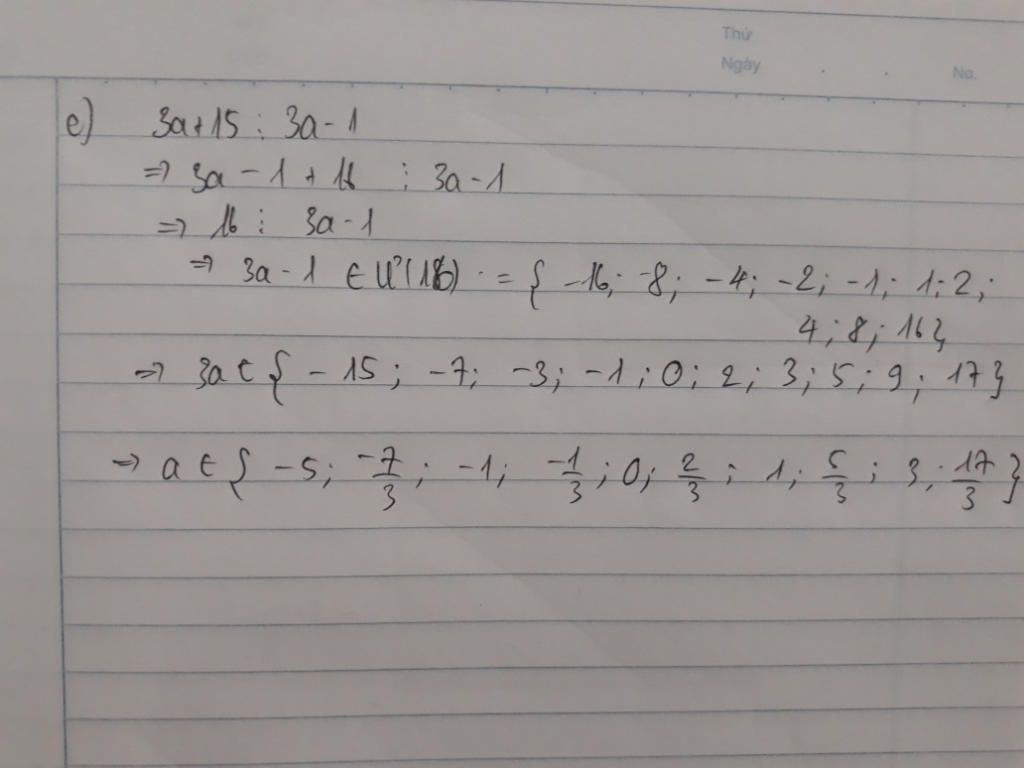 Thứ
Ngày . . No.
e) 3a+15 ⋮ 3a-1
=> 3a - 1 + 16 ⋮ 3a-1
=> 16 ⋮ 3a-1
=> 3a-1 ∈ Ư(16) = { -16; -8; -4; -2; -1; 1; 2;
4; 8; 16}
=> 3a ∈ { -15; -7; -3; -1; 0; 2; 3; 5; 9; 17}
=> a ∈ { -5; -7/3; -1; -1/3; 0; 2/3; 1; 5/3; 3; 17/3 }